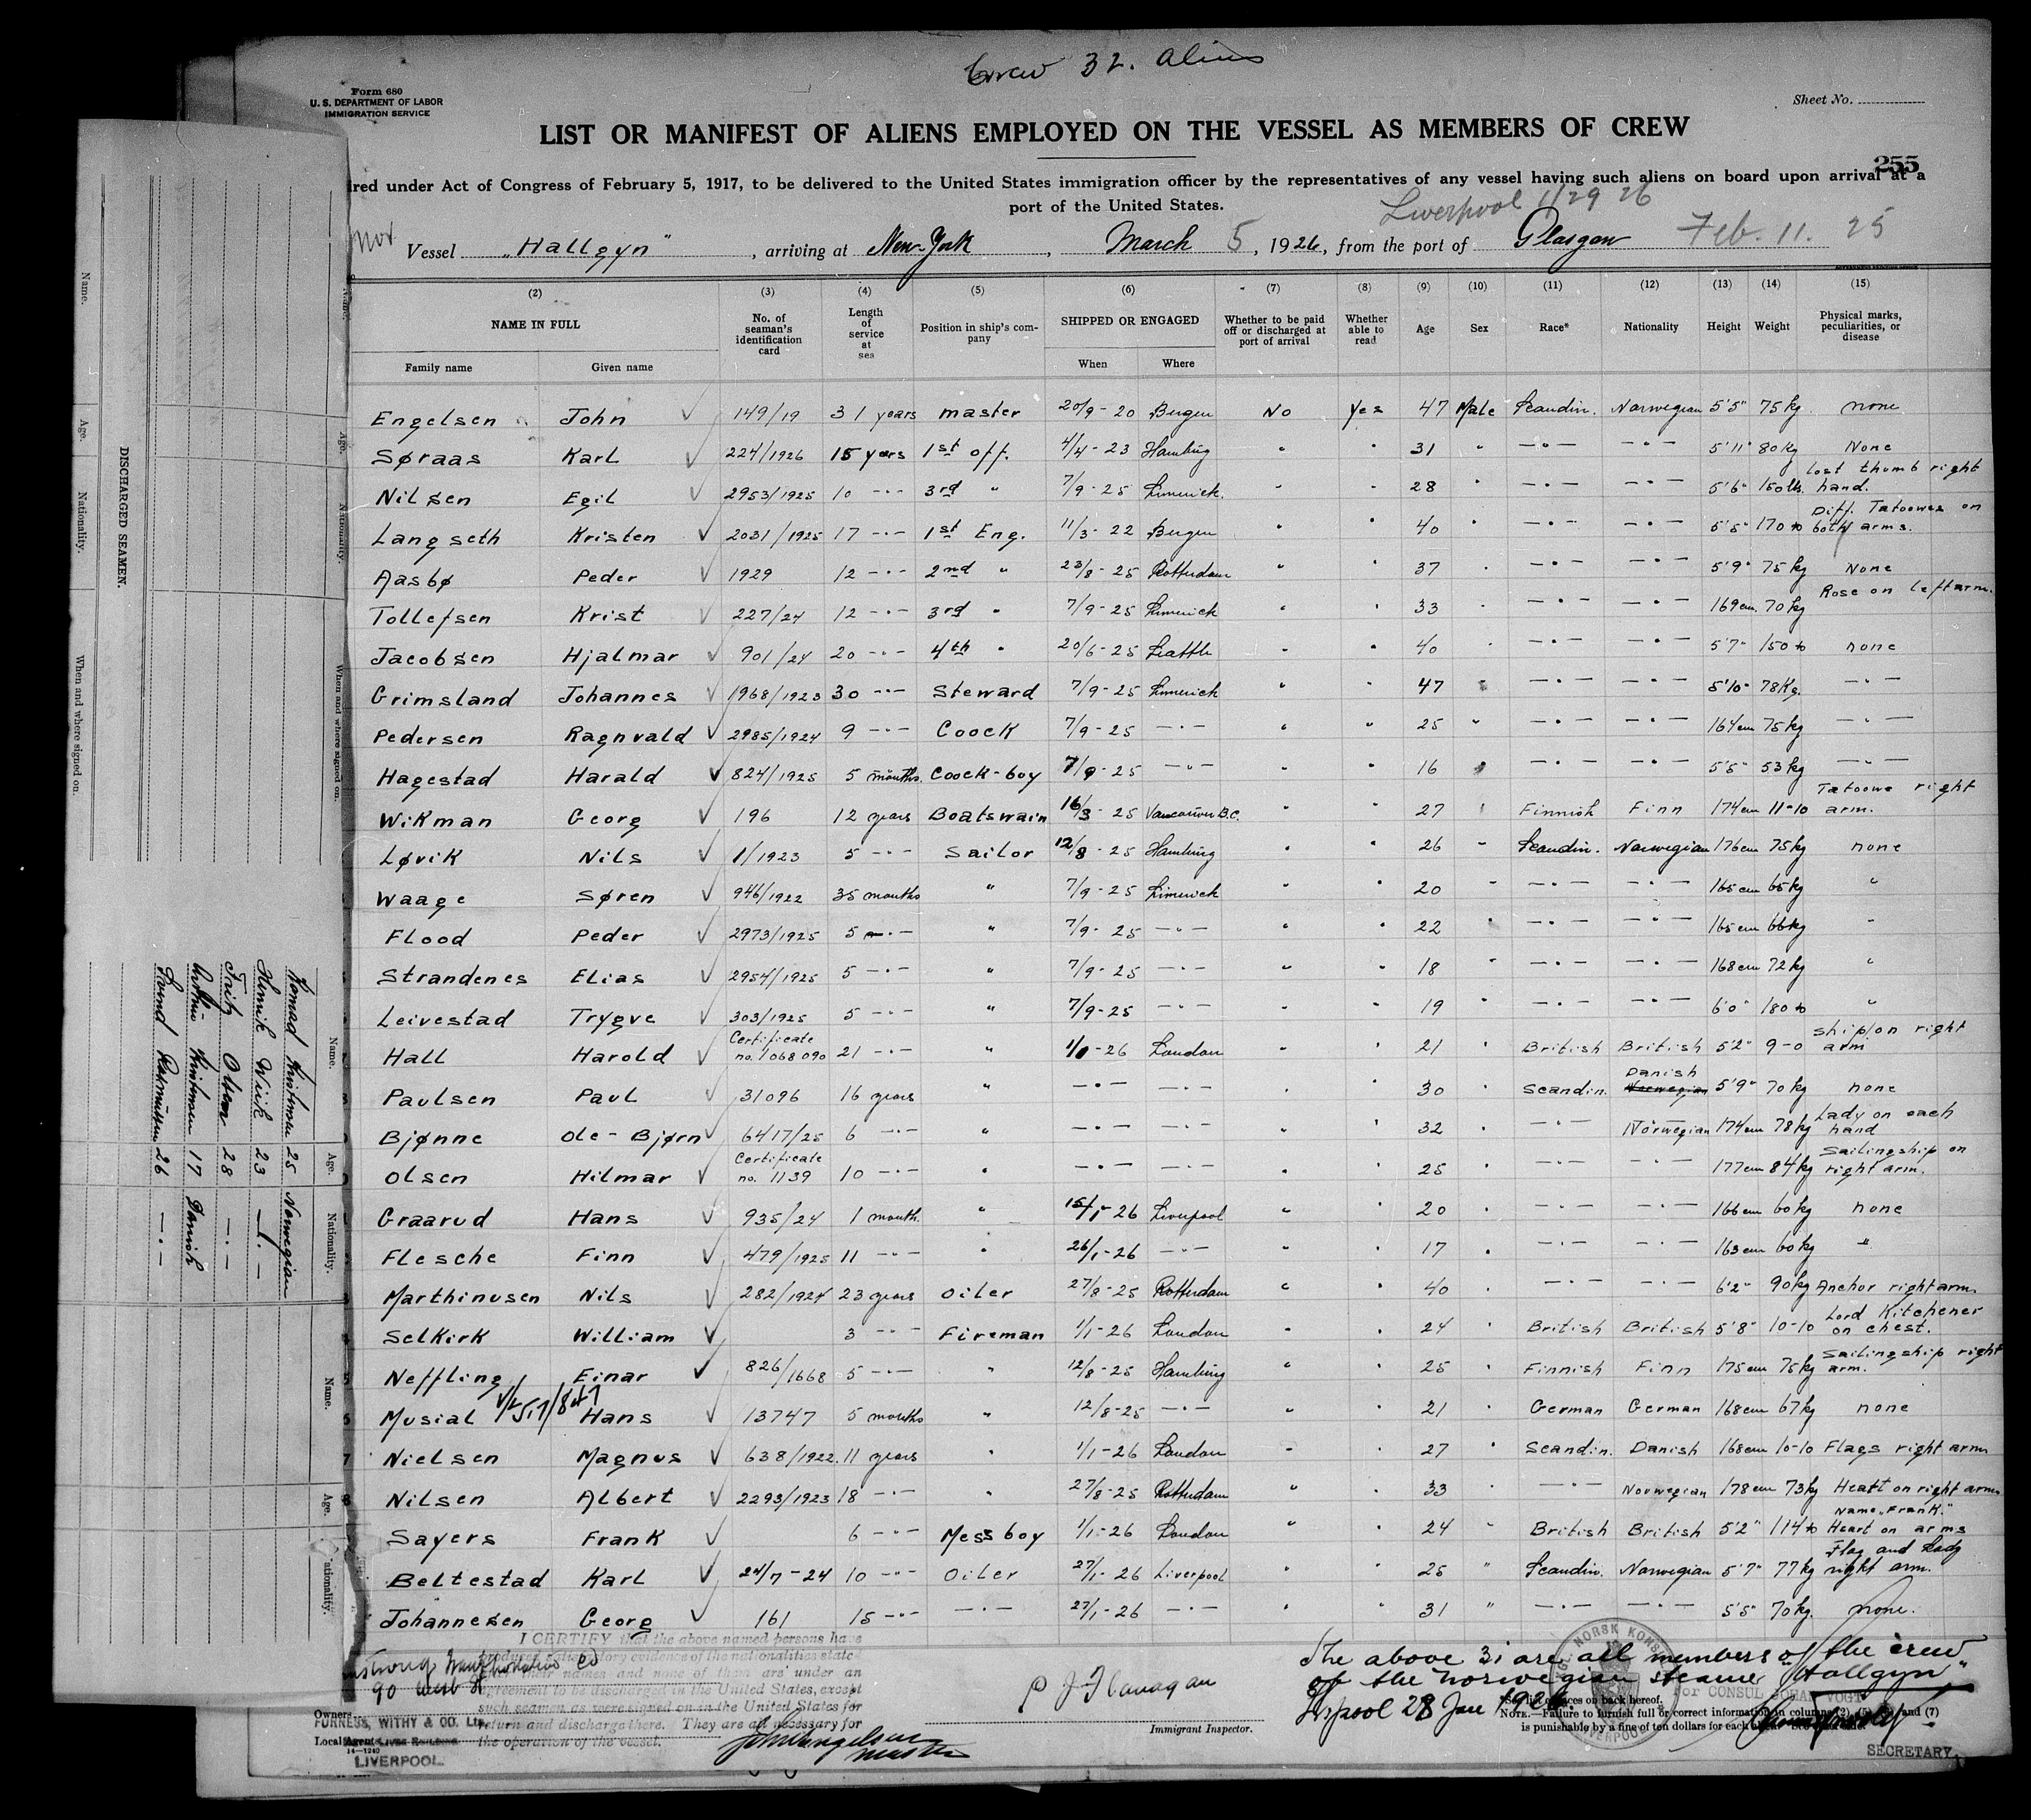 Crew 32. Aliens
Form 680
U. S. DEPARTMENT OF LABOR
IMMIGRATION SERVICE
Sheet No.
LIST OR MANIFEST OF ALIENS EMPLOYED ON THE VESSEL AS MEMBERS OF CREW
255
ired under Act of Congress of February 5, 1917, to be delivered to the United States immigration officer by the representatives of any vessel having such aliens on board upon arrival at a
port of the United States.
Liverpool 1/29 26
Nor Vessel „Hallgyn", arriving at New-York, March 5, 1926, from the port of Glasgow Feb. 11. 25
(2) (3) (4) (5) (6) (7) (8) (9) (10) (11) (12) (13) (14) (15)
NAME IN FULL No. of seaman's identification card Length of service at sea Position in ship's company SHIPPED OR ENGAGED Whether to be paid off or discharged at port of arrival Whether able to read Age Sex Race* Nationality Height Weight Physical marks, peculiarities, or disease
Family name Given name When Where
Engelsen John ✓ 149/19 31 years master 20/9-20 Bergen No Yes 47 Male Scandin. Norwegian 5'5" 75 kg. none
Søraas Karl ✓ 224/1926 15 years 1st off. 4/4-23 Hamburg " " 31 " —"— —"— 5'11" 80 kg None
Nilsen Egil ✓ 2953/1925 10 —"— 3rd " 7/9-25 Limerick. " " 28 " —"— —"— 5'6" 150 lb. Lost thumb right hand.
Langseth Kristen ✓ 2031/1925 17 —"— 1st Eng. 11/3-22 Bergen " " 40 " —"— —"— 5'5" 170 lb Diff. Tatoowes on both arms.
Aasbø Peder ✓ 1929 12 —"— 2nd " 23/8-25 Rotterdam " " 37 " —"— —"— 5'9" 75 kg None
Tollefsen Krist ✓ 227/24 12 —"— 3rd " 7/9-25 Limerick " " 33 " —"— —"— 169 cm. 70 kg Rose on left arm.
Jacobsen Hjalmar ✓ 901/24 20 —"— 4th " 20/6-25 Seattle " " 40 " —"— —"— 5'7" 150 lb none
Grimsland Johannes ✓ 1968/1923 30 —"— Steward 7/9-25 Limerick " " 47 " —"— —"— 5'10" 78 Kg. —"—
Pedersen Ragnvald ✓ 2985/1924 9 —"— Coock 7/9-25 —"— " " 25 " —"— —"— 164 cm 75 kg —"—
Hagestad Harald ✓ 824/1925 5 months. Coock-boy 7/9-25 —"— " " 16 " —"— —"— 5'5" 53 kg —"—
Wikman Georg ✓ 196 12 years Boatswain 16/3-25 Vancouver B.C. " " 27 " Finnish Finn 174 cm 11-10 Tatoowe right arm.
Løvik Nils ✓ 1/1923 5 —"— Sailor 12/8-25 Hamburg " " 26 " Scandin. Norwegian 176 cm 75 kg none
Waage Søren ✓ 946/1922 35 months " 7/9-25 Limerick " " 20 " —"— —"— 165 cm 65 kg "
Flood Peder ✓ 2973/1925 5 —"— " 7/9-25 —"— " " 22 " —"— —"— 165 cm 66 kg "
Strandenes Elias ✓ 2954/1925 5 —"— " 7/9-25 —"— " " 18 " —"— —"— 168 cm 72 kg "
Leivestad Trygve ✓ 303/1925 5 —"— " 7/9-25 —"— " " 19 " —"— —"— 6'0" 180 lb "
Hall Harold ✓ Certificate no. 1068090 21 —"— " 1/1-26 London " " 21 " British British 5'2" 9-0 ship on right arm
Paulsen Paul ✓ 31096 16 years " —"— —"— " " 30 " Scandin. Danish Norwegian 5'9" 70 kg none
Bjønne Ole-Bjørn ✓ 6417/25 6 —"— " —"— —"— " " 32 " —"— Norwegian 174 cm 78 kg Lady on each hand
Olsen Hilmar ✓ Certificate no. 1139 10 —"— " —"— —"— " " 25 " —"— —"— 177 cm 84 kg Sailingship on right arm.
Graarud Hans ✓ 935/24 1 month. " 15/1-26 Liverpool " " 20 " —"— —"— 166 cm 60 kg none
Flesche Finn ✓ 479/1925 11 —"— " 26/1-26 —"— " " 17 " —"— —"— 163 cm 60 kg "
Marthinusen Nils ✓ 282/1924 23 years Oiler 27/8-25 Rotterdam " " 40 " —"— —"— 6'2" 90 kg Anchor right arm.
Selkirk William ✓ 3 —"— Fireman 1/1-26 London " " 24 " British British 5'8" 10-10 Lord Kitchener on chest.
Neffling Einar ✓ 826/1668 5 —"— " 12/8-25 Hamburg " " 25 " Finnish Finn 175 cm 75 kg Sailingship right arm.
Musial Hans ✓ 13747 5 months " 12/8-25 —"— " " 21 " German German 168 cm 67 kg none
Nielsen Magnus ✓ 638/1922. 11 years " 1/1-26 London " " 27 " Scandin. Danish 168 cm 10-10 Flags right arm
Nilsen Albert ✓ 2293/1923 18 —"— " 27/8-25 Rotterdam " " 33 " —"— Norwegian 178 cm 73 kg Heart on right arm
Sayers Frank ✓ 6 —"— Mess boy 1/1-26 London " " 24 " British British 5'2" 114 lb Name „Frank." Heart on arms
Beltestad Karl ✓ 24/7-24 10 —"— Oiler 27/1-26 Liverpool " " 25 " Scandin. Norwegian 5'7" 77 kg Flag and Lady right arm.
Johannesen Georg ✓ 161 15 —"— —"— 27/1-26 —"— " " 31 " —"— —"— 5'5" 70 kg. none.
I CERTIFY that the above named persons have
evidence of the nationalities
their names and none of them are under an
agreement to be discharged in the United States, except
such seamen as were signed on in the United States for
return and discharge there. They are all necessary for
the operation of the vessel.
90 West St
Owners
FURNESS, WITHY & CO. Ltd.
Local Agents
14—1240
LIVERPOOL
John Engelsen
master
P J Flanagan
Immigrant Inspector.
The above 31 are all members of the crew
of the Norwegian steamer „Hallgyn"
L'pool 28 Jan 1926.
NORSK KONSU
LIVERPOOL
For CONSUL JOHAN VOGT
on back hereof.
NOTE.—Failure to furnish full or correct information in columns (2), (5), (6) and (7)
is punishable by a fine of ten dollars for each
SECRETARY.
DISCHARGED SEAMEN.
Name. Age. Nationality. When and where signed on.
Name. Age. Nationality. When and where signed on.
Name. Age. Nationality.
Konrad Kristensen 25 Norwegian
Henrik Wiik 23 —"—
Fritz Olsen 28 —"—
Kristensen 17 Danish
Rasmussen 26 —"—
Name. Age. Nationality.